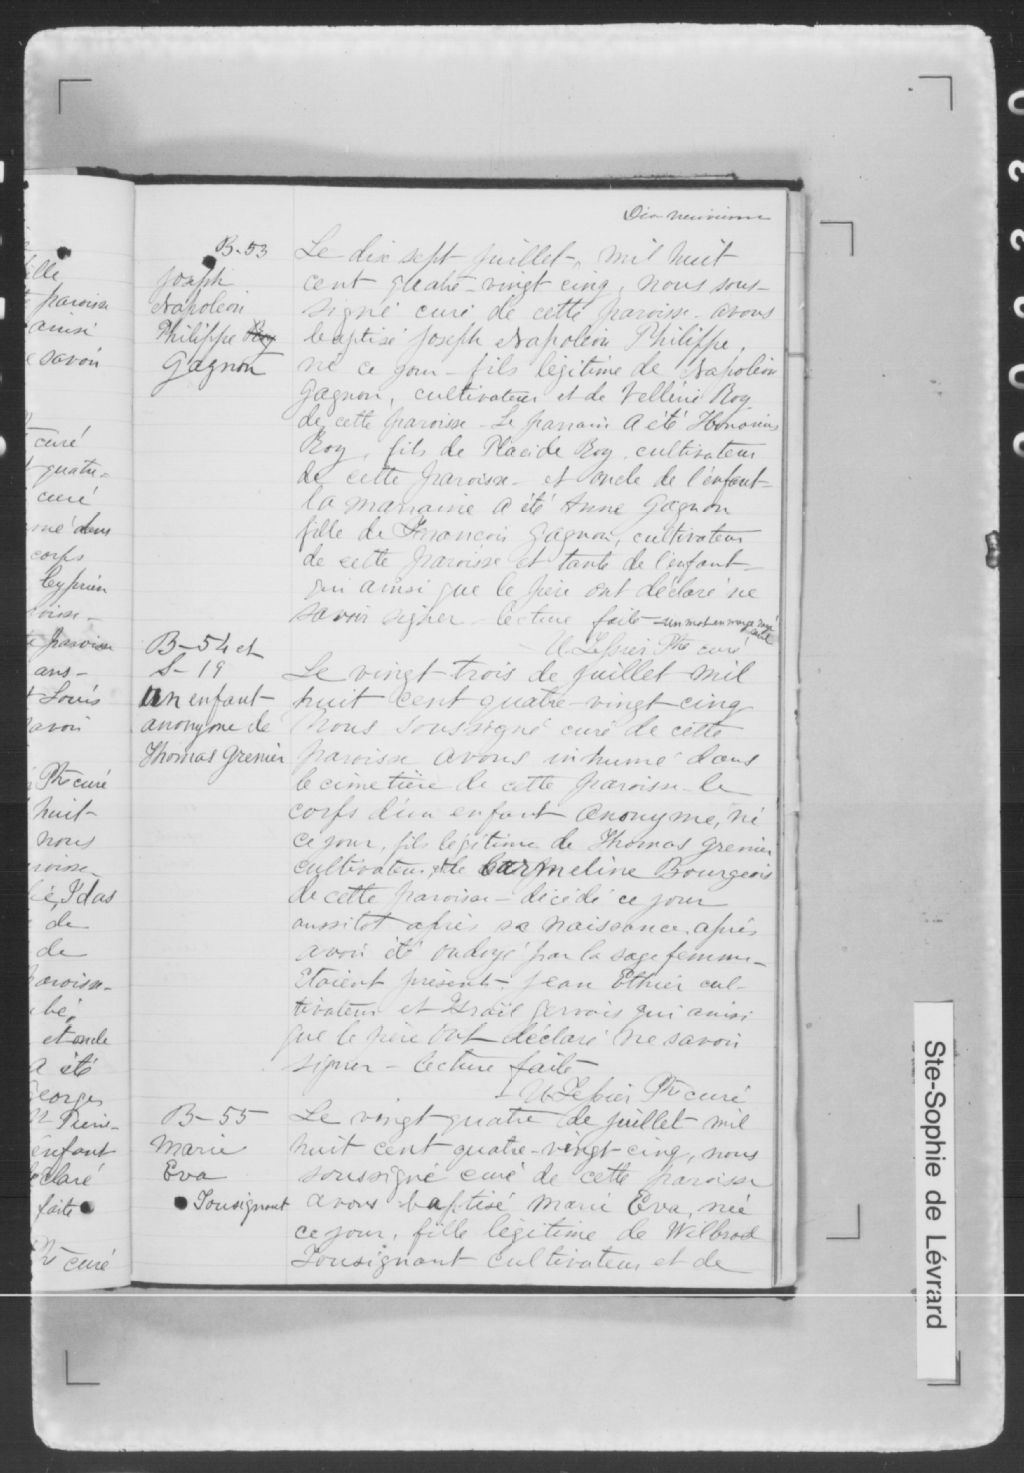 Dix neuvième
B-53
Joseph
Napoléon
Philippe Roy
Gagnon
Le dix sept juillet, mil huit
cent quatre-vingt cinq, nous sous-
signé curé de cette paroisse avons
baptisé Joseph Napoléon Philippe,
né ce jour fils légitime de Napoléon
Gagnon, cultivateur et de Velléni Roy
de cette paroisse - Le parrain a été Honorius
Roy, fils de Placide Roy, cultivateur
de cette paroisse - et oncle de l'enfant -
la marraine a été Anne Gagnon
fille de François Gagnon, cultivateur
de cette paroisse et tante de l'enfant -
qui ainsi que le père ont déclaré ne
savoir signer - lecture faite - un mot en marge rayé
U. Ptre curé
B-54 et
S-19
Un enfant
anonyme de
Thomas Grenier
Le vingt trois de juillet mil
huit cent quatre-vingt cinq
nous soussigné curé de cette
paroisse avons inhumé dans
le cimetière de cette paroisse le
corps d'un enfant anonyme, né
ce jour, fils légitime de Thomas Grenier
cultivateur, et de Carmeline Bourgeois
de cette paroisse - décédé ce jour
aussitot après sa naissance, après
avoir été ondoyé par la sage femme -
Etaient présents - Jean Ethier cul-
tivateur et Israël Gervais qui ainsi
que le père ont déclaré ne savoir
signer - lecture faite
U. Ptre curé
B-55
Marie
Eva
Tousignant
Le vingt quatre de juillet mil
huit cent quatre-vingt-cinq, nous
soussigné curé de cette paroisse
avons baptisé Marie Eva, née
ce jour, fille légitime de Wilbrod
Tousignant cultivateur et de
fille
paroisse
ainsi
savoir
curé
quatre-
curé
mé dans
corps
Cyprien
paroisse
ans -
Louis
Ptre curé
huit-
nous
Idas
de
de
et oncle
a été
Georges
enfant
faite
Ptre curé
Ste-Sophie de Lévrard